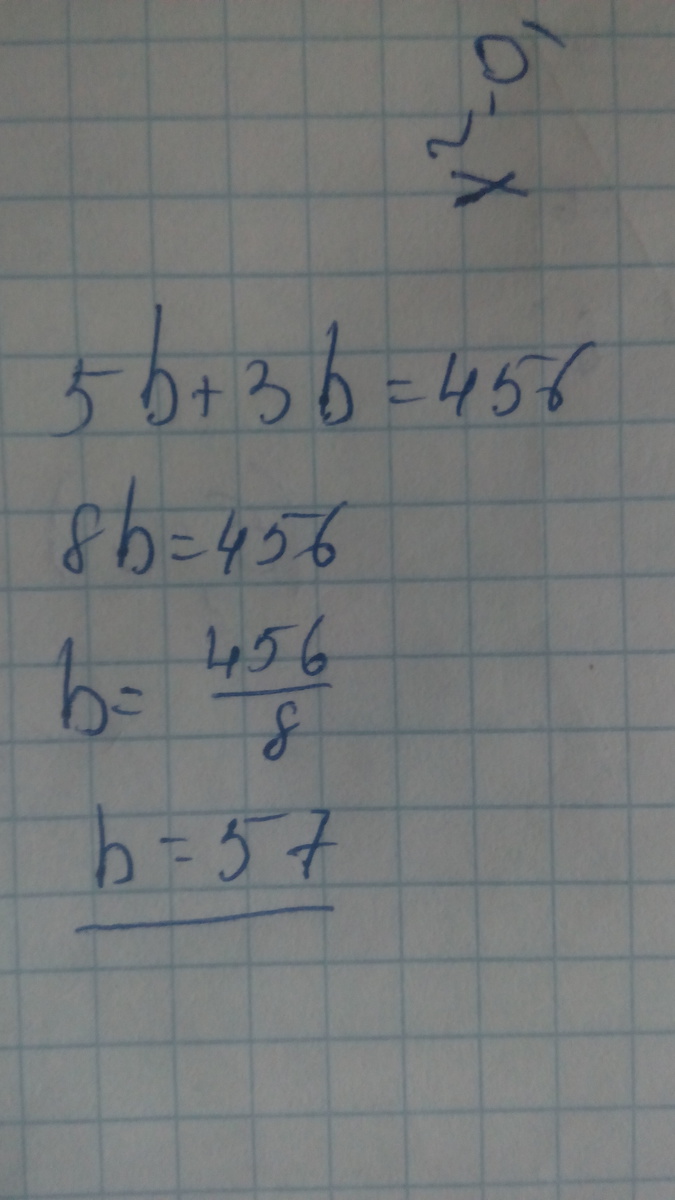 5b+3b=456
8b=456
b=456/8
b=57